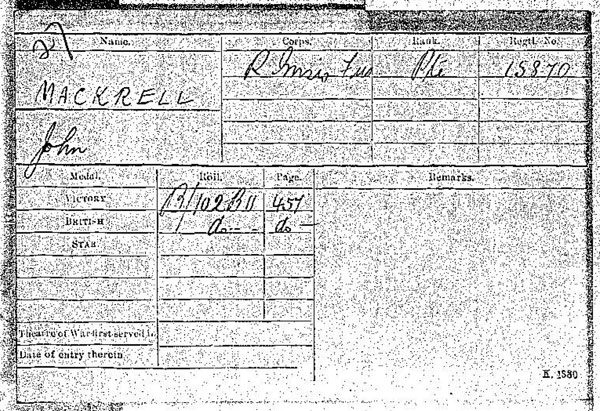 Name. Corps. Rank. Regtl. No.
R Innis Fus Pte 15870
MACKRELL
John
Medal. Roll. Page. Remarks.
VICTORY B/102 B11 457
BRITISH do do
STAR
Theatre of War first served in
Date of entry therein
K. 1380